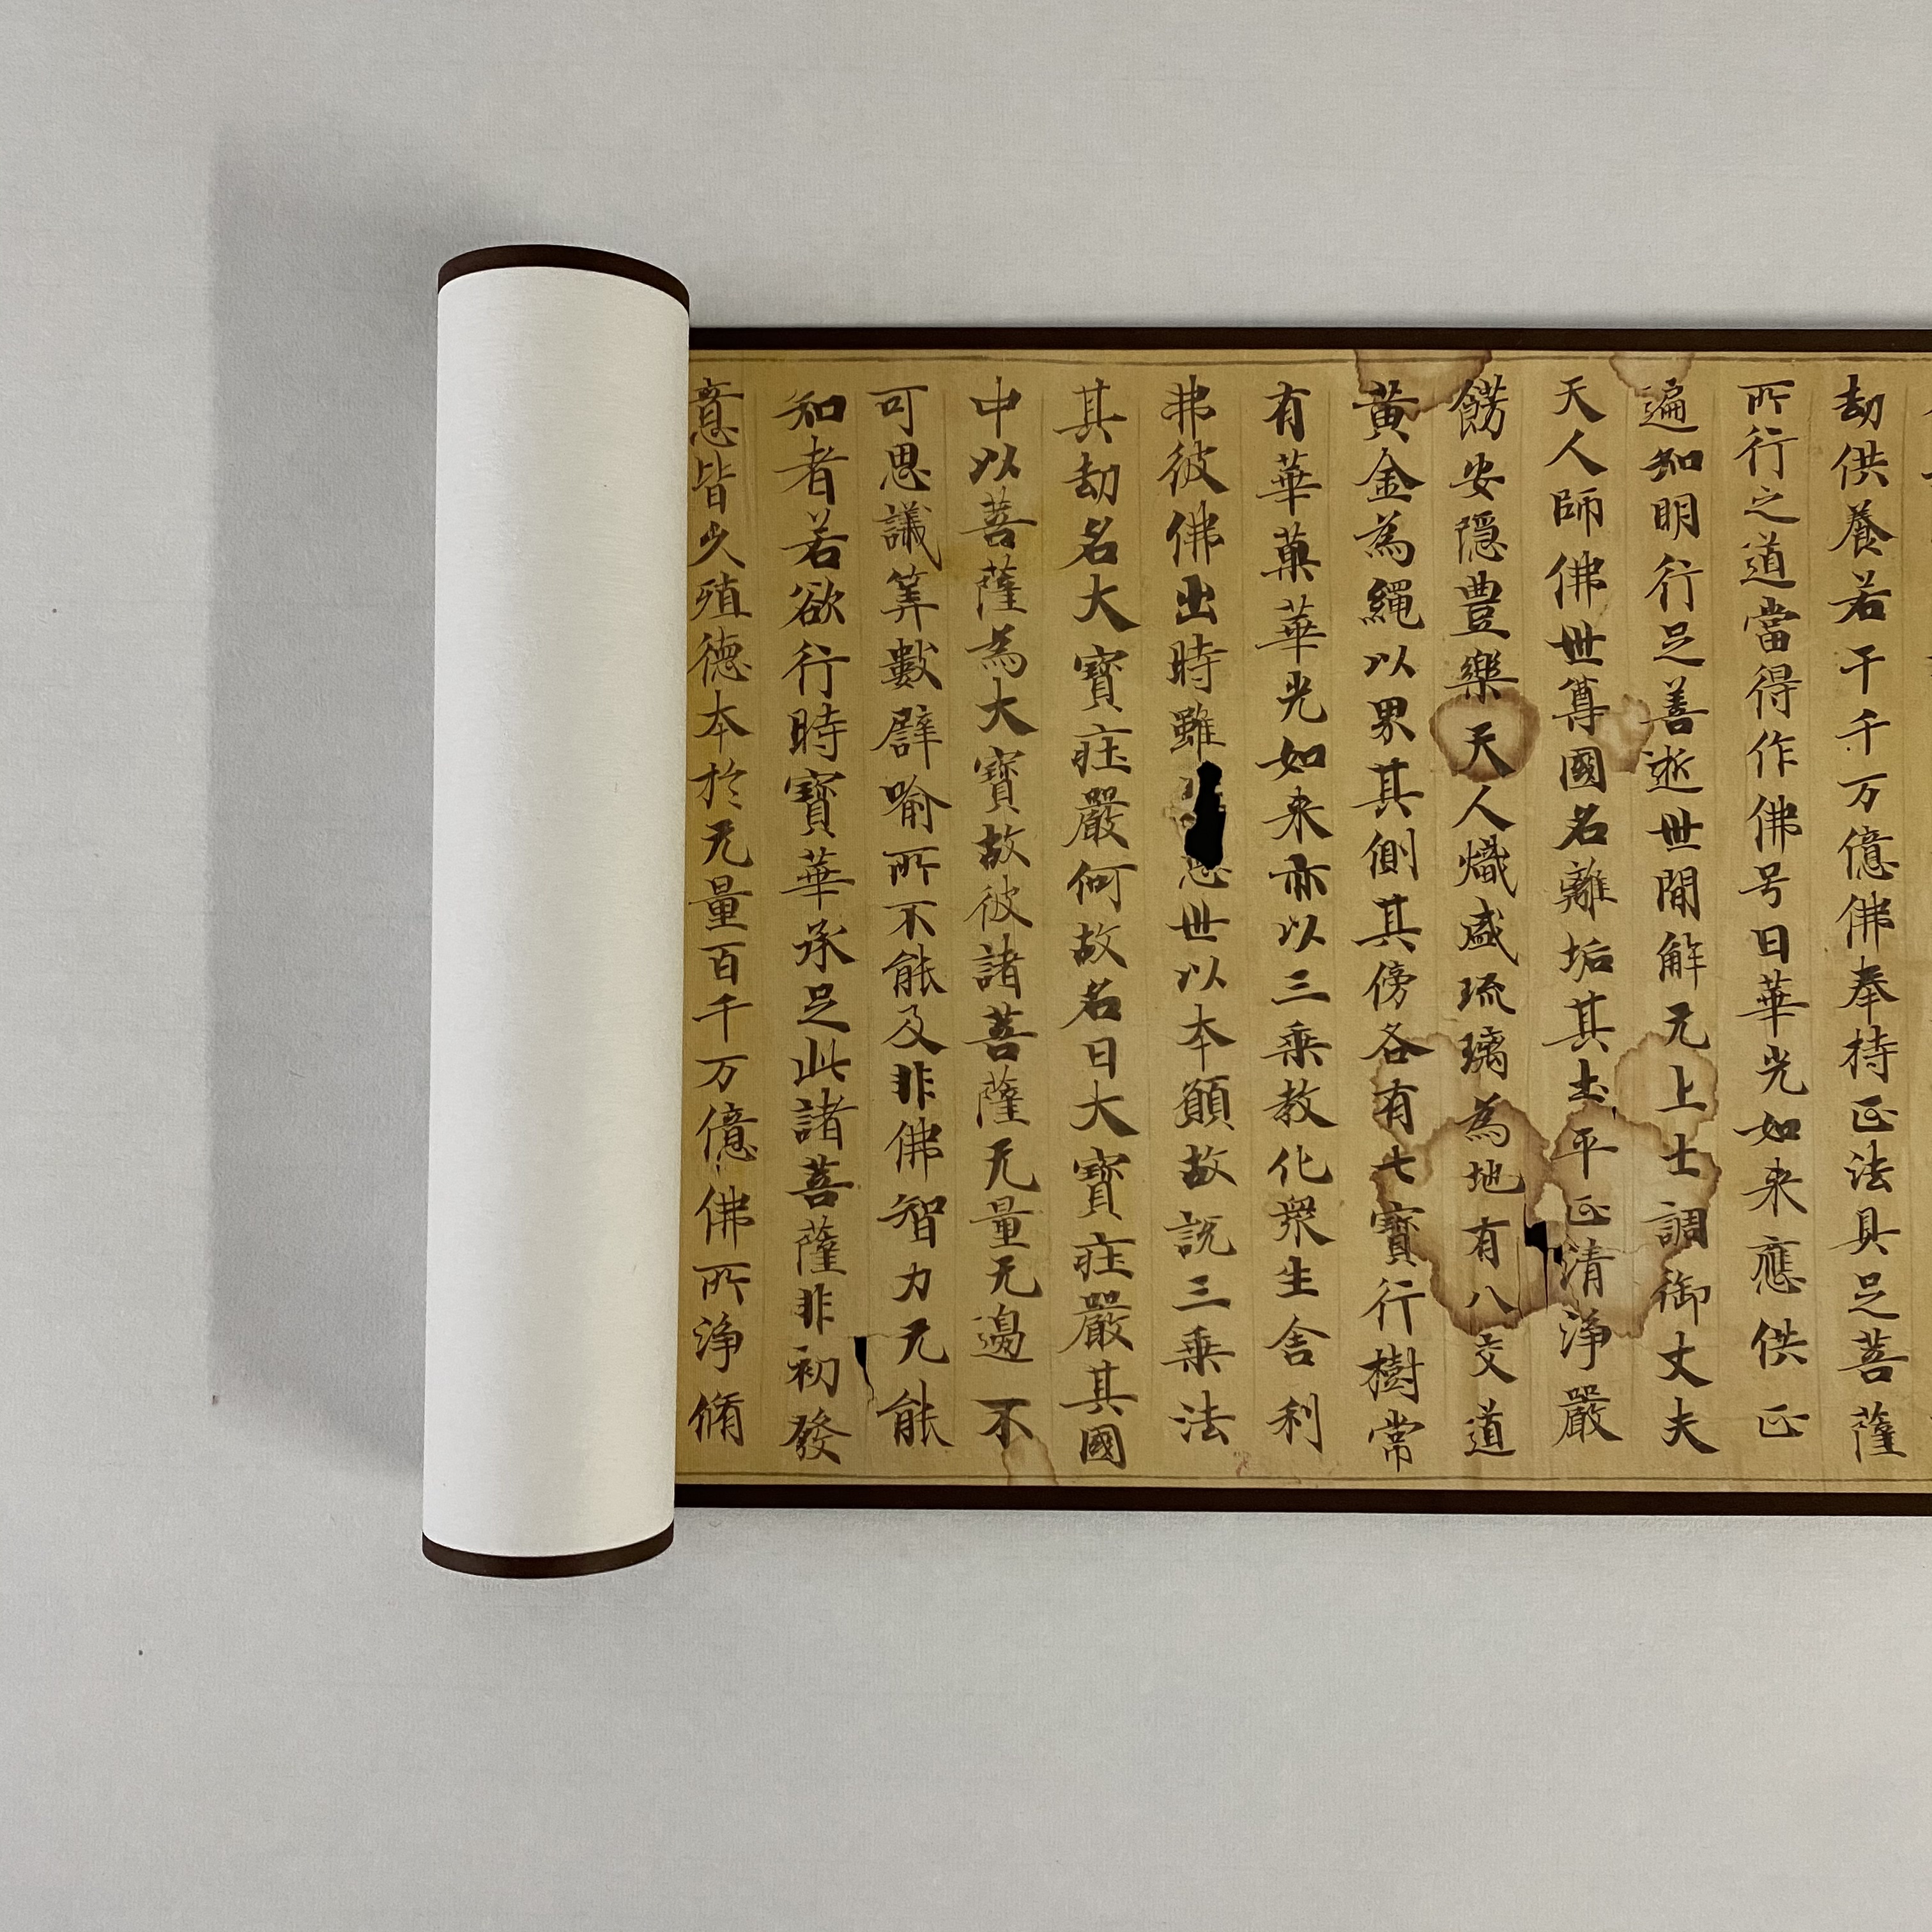 劫供養若干千万億佛奉持正法具足菩薩
所行之道當得作佛号曰華光如来應供正
遍知明行足善逝世間解无上士調御丈夫
天人師佛世尊國名離垢其土平正清淨嚴
餝安隠豊樂天人熾盛琉璃為地有八交道
黄金為繩以界其側其傍各有七寶行樹常
有華菓華光如来亦以三乗教化衆生舎利
弗彼佛出時雖惡世以本願故説三乗法
其劫名大寶莊嚴何故名曰大寶莊嚴其國
中以菩薩為大寶故彼諸菩薩无量无邊不
可思議筭數譬喻所不能及非佛智力无能
知者若欲行時寶華承足此諸菩薩非初發
意皆久殖德本於无量百千万億佛所淨脩